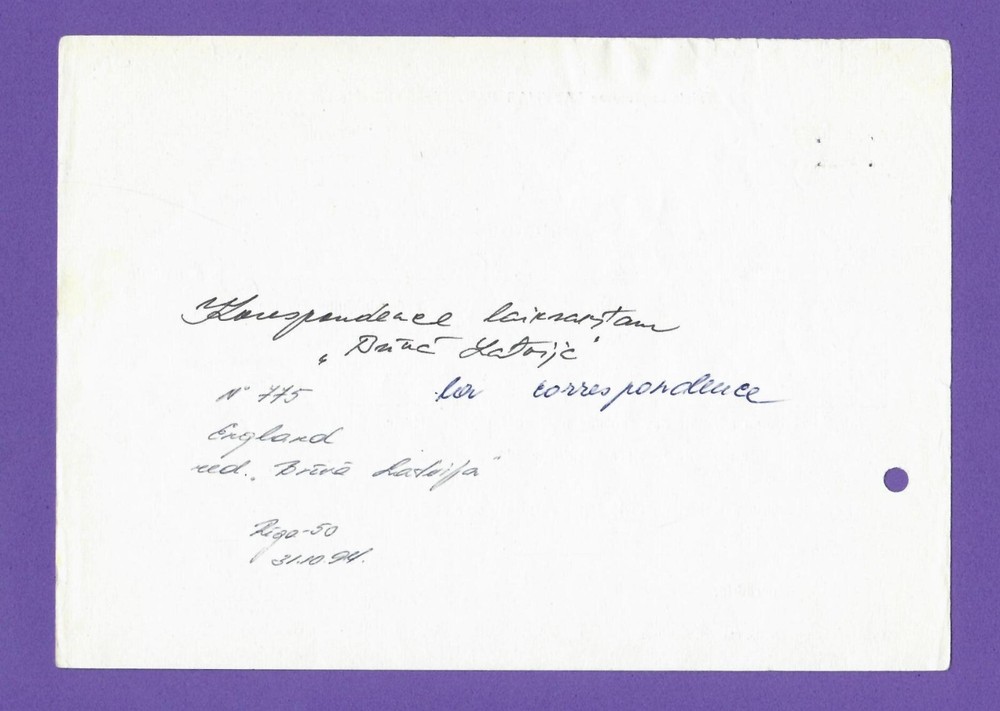 Korespondence laikrakstam
„Brīvā Latvija"
N° 775
for correspondence
England
red. „Brīvā Latvija"
Rīga-50
31.10.94.